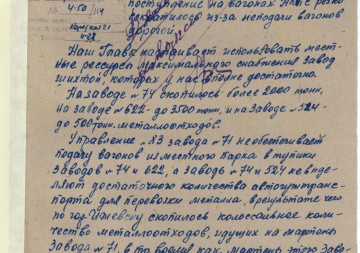 поступление на вагонах НКПС резко
сократилось из-за неподачи вагонов
дорогой.
4-50/114
Наш Главк настаивает использовать мест-
ные ресурсы максимального снабжения завод
шихтой, которых у нас вполне достаточно.
На заводе №74 скопилось более 2000 тонн,
на заводе №622- до 3500 тонн, и на заводе №524-
до 500 тонн металлоотходов.
Управление №83 завода №71 не обеспечивает
подачу вагонов из местного парка в тупики
заводов №74 и 622, а заводы №74 и 524 не выде-
ляют достаточного количества автогужтранс-
порта для перевозки металла, в результате чего
по гор. Ижевску скопилось колоссальное коли-
чество металлоотходов, идущих на мартены
завода №71, в то время как мартены этого заво-